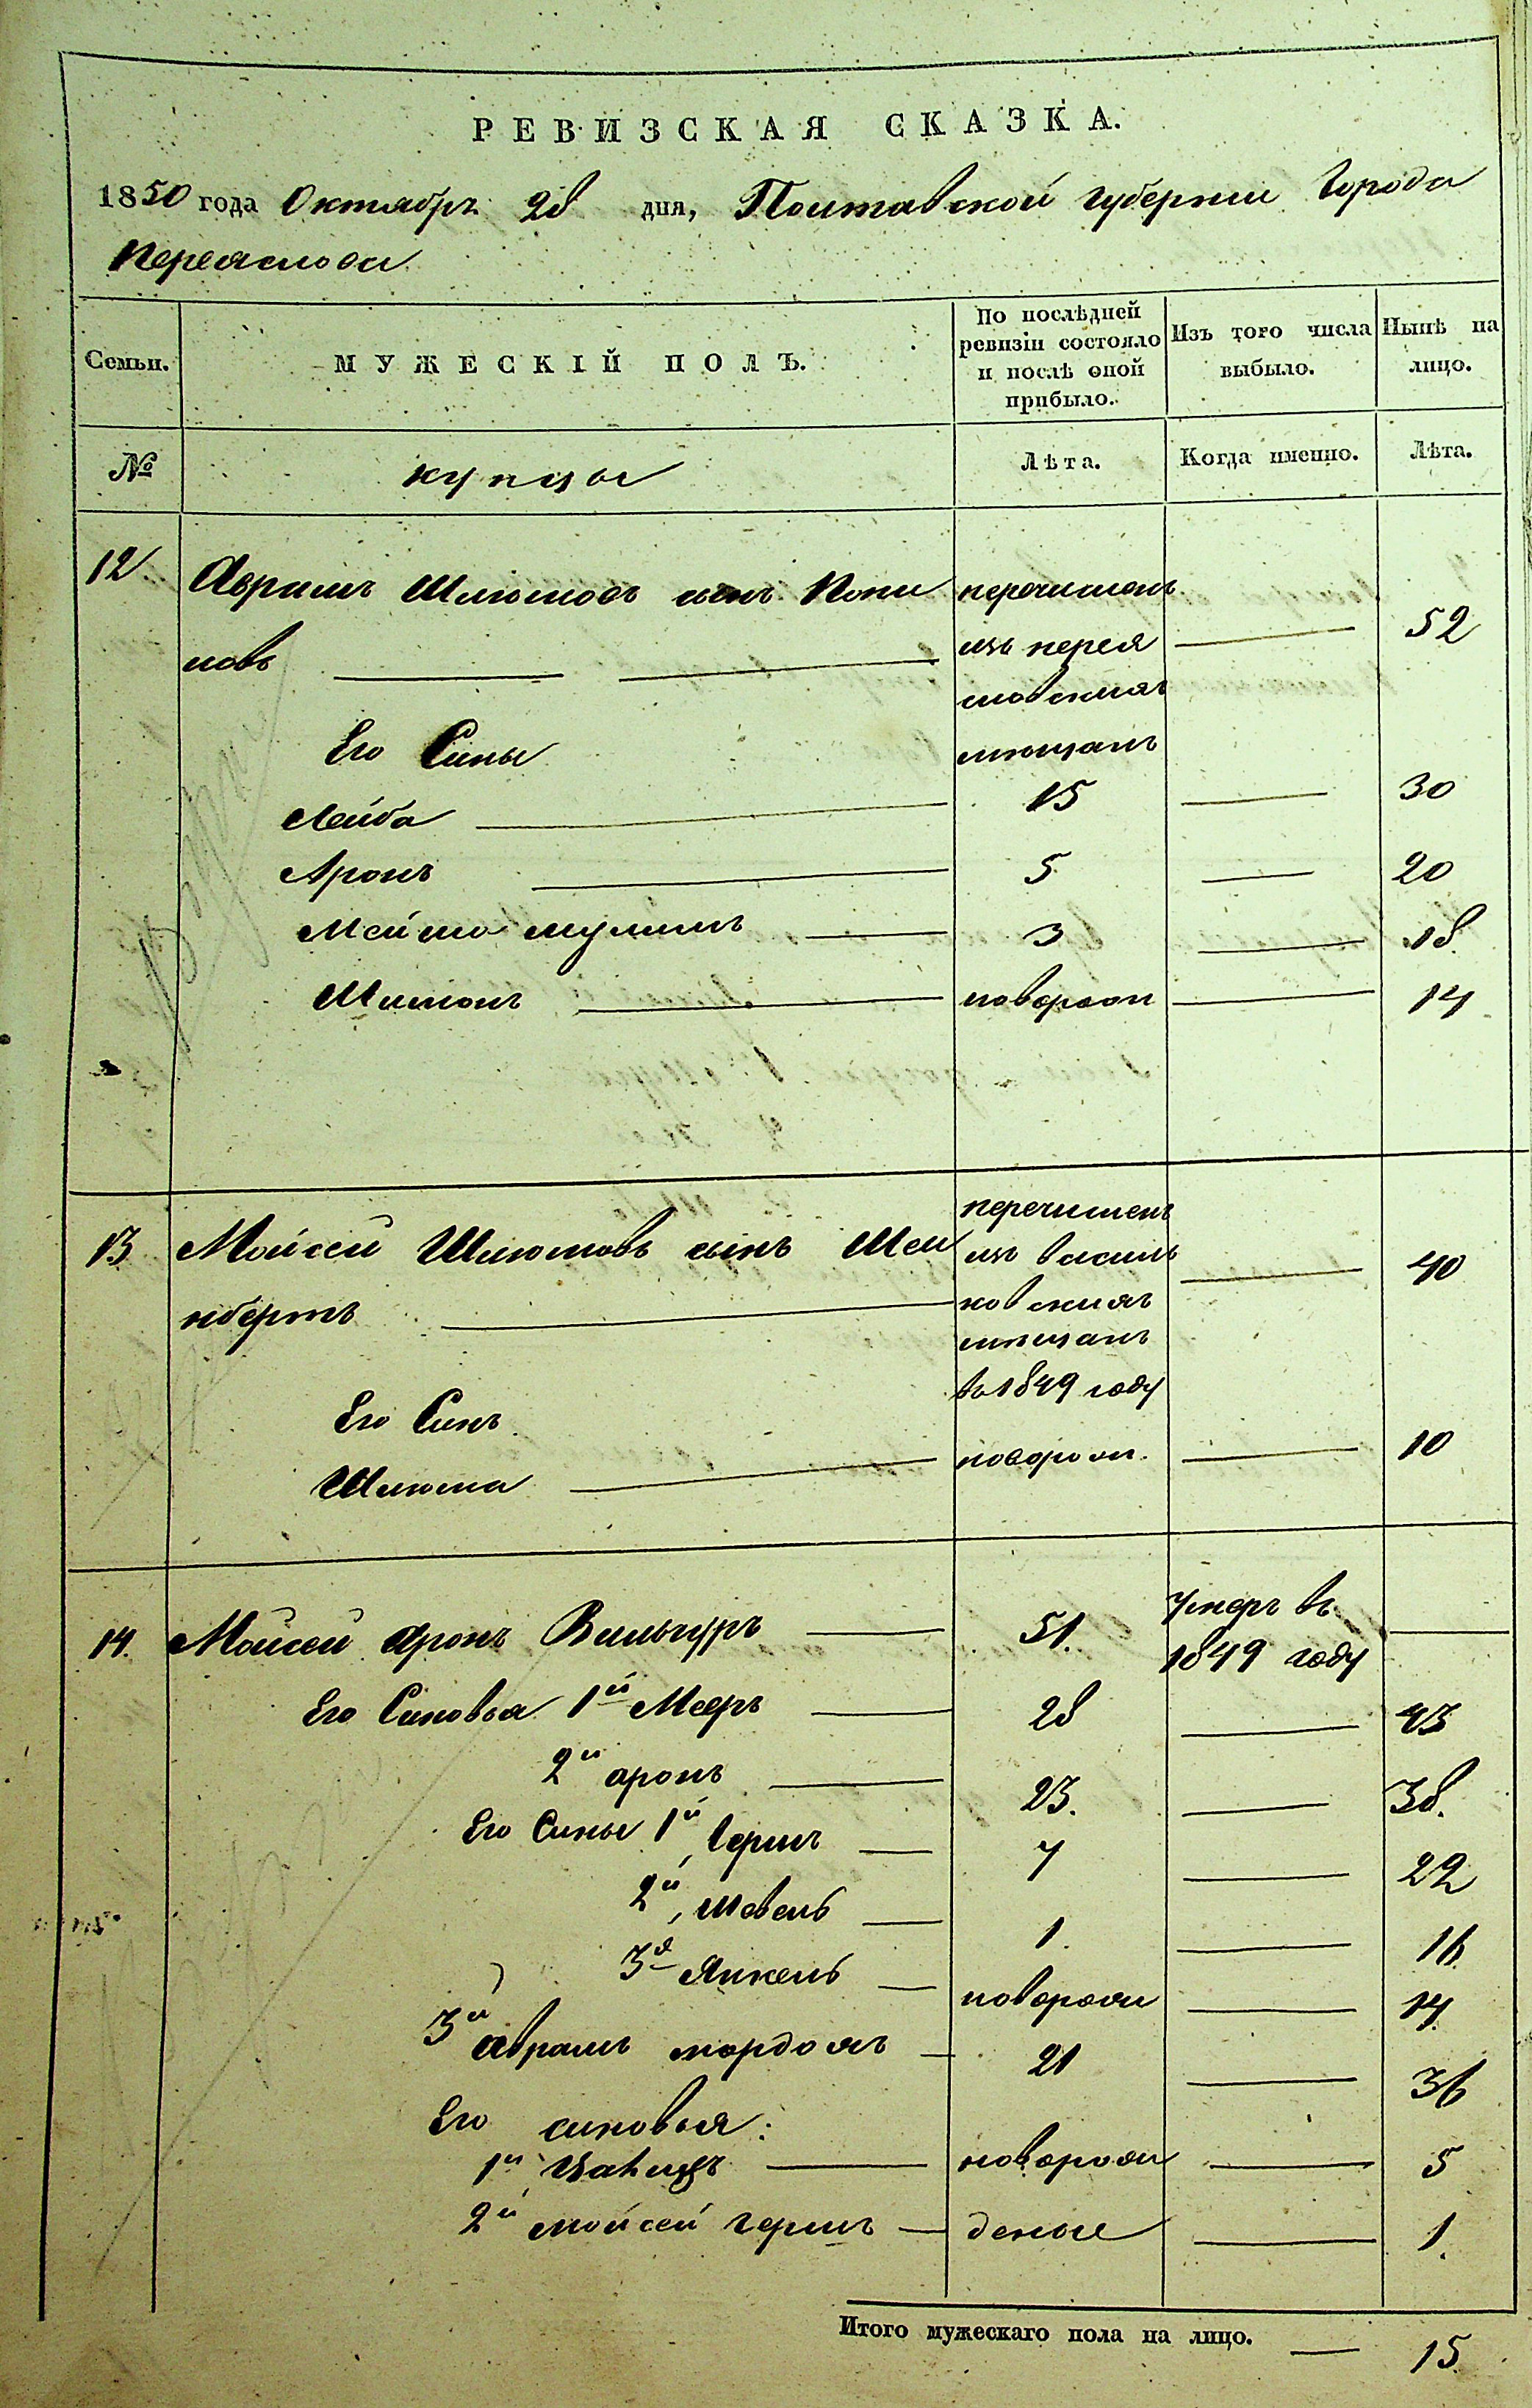 РЕВИЗСКАЯ СКАЗКА.
1850 года Октября 28 дня, Полтавской губернии Города
Переяслова
Семьи. МУЖЕСКІЙ ПОЛЪ. По послѣдней ревизіи состояло и послѣ оной прибыло. Изъ того числа выбыло. Нынѣ на лицо.
№ купцы Лѣта. Когда именно. Лѣта.
12 Аврамъ Шлюмовъ сынъ Копи перечисленъ
новъ изъ перея 52
словскихъ
Его Сины мющанъ
Лейба 15 30
Аронъ 5 20
Мейшо мулимъ 3 18
Шимонъ новорож 14
13 Мойсей Шлюмовъ сынъ Шеи перечисленъ
нбергъ изъ василь 40
ковскихъ
мющанъ
въ 1849 году
Его Синъ
Шлюма новорож. 10
14. Мойсей аронъ 51. Умеръ въ
1849 году
Его Синовья 1й Мееръ 28 43
2й аронъ 23. 38.
Его Сины 1й, Гершъ 7 22
2й, Шевель 1. 16
3й Янкель новорож 14
3й аврамъ мордохъ 21 36
Его синовья:
1й новорож 5
2й мойсей гершъ деные 1.
Итого мужескаго пола на лицо. 15